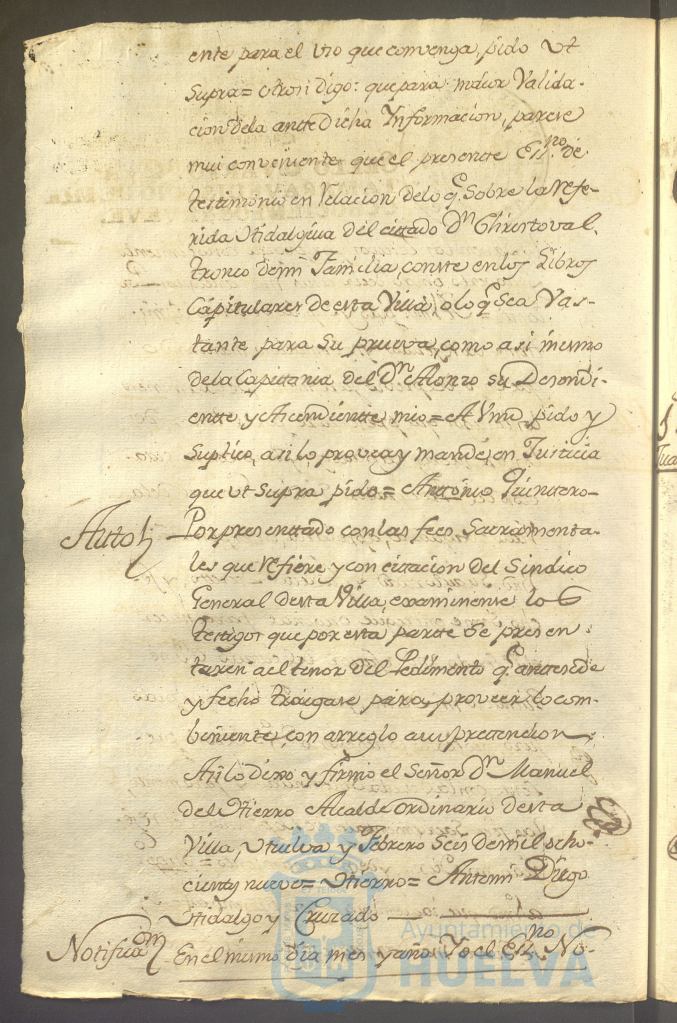 ente para el uso que convenga, pido ut
Supra= otrosi digo: que para maior Valida-
cion de la antedicha Informacion, parese
mui conveniente que el presente Essno de
testimonio en Relacion de lo q.e Sobre la Refe-
rida Hidalguia del cittado Dn Christoval,
tronco de mi Familia, conste en los Libros
Capitulares de esta Villa, o lo q.e sea Vas-
tante para su prueva, como asi mesmo
de la Capitania del Dn Alonzo su Desendi-
ente, y Acendiente mio= A Vmd pido y
Suplico, asi lo provea y mande, en Justicia
que ut Supra pido= Antonio Quintero-
Auto
Por presenttado con las fees Sacramenta-
les que refiere y con citacion del Sindico
General desta Villa, examinense los
testigos que por esta parte se presen-
taren al tenor del Pedimento q.e antesede
y fecho traigase para proveer lo com-
beniente, con arreglo a su pretencion
Asi lo dixo y firmo el Señor Dn Manuel
del Hierro Alcalde ordinario desta
Villa, Huelva y Febrero Seis de mil ocho-
cientos nueve= Hierro= Antemi Diego
Hidalgo y Cruzado
Notificaon
En el mismo dia mes y año Yo el Essno No-
Ayuntamiento de
HUELVA